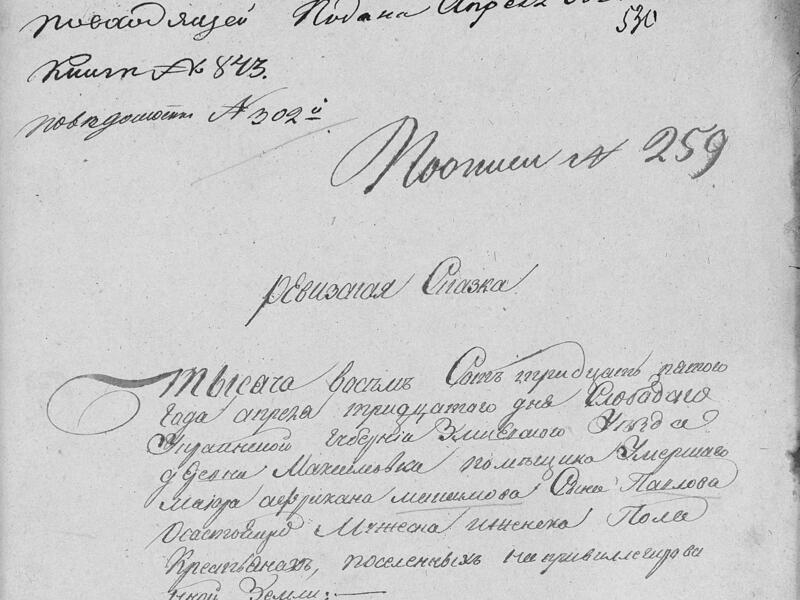 по входящей Подана Апреля
530
Книги № 843.
по ведомости № 302й
По описи № 259
ревизская Сказка
Тысяча восемь Сотъ тридцать пятого
года апреля тридцатого дня Слободско
Украинской губернiи Змиевского Уѣзда
дЕревни Максимовка помѣщика Умершаго
маiора африкана максимова Сына Павлова
Осостоящихъ Мужеска иженска Пола
Крестьянахъ, поселенныхъ на привиллегирова
нной Земли:—